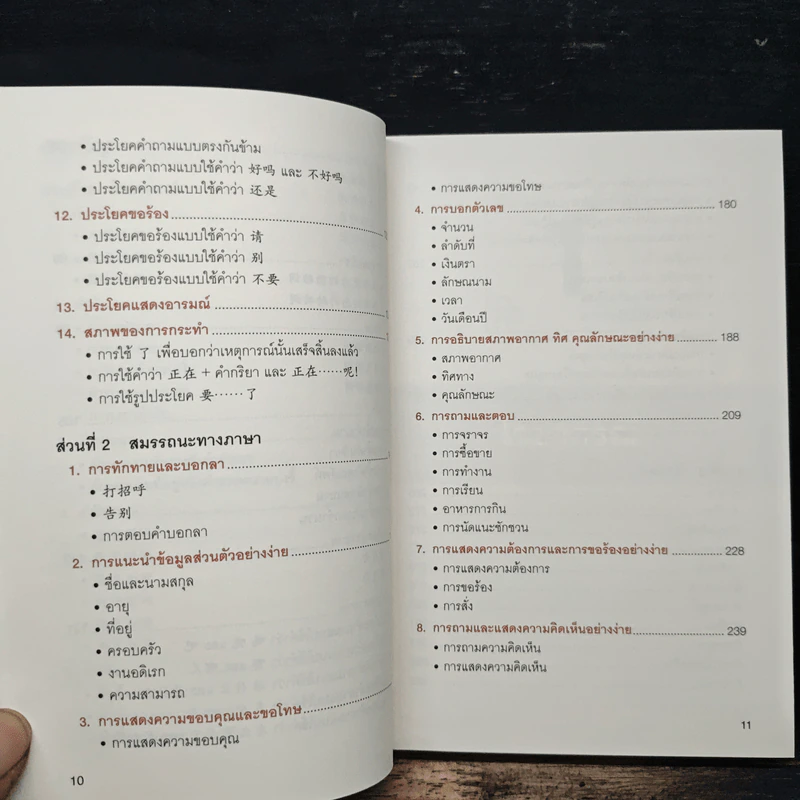 • ประโยคคำถามแบบตรงกันข้าม
• ประโยคคำถามแบบใช้คำว่า 好吗 และ 不好吗
• ประโยคคำถามแบบใช้คำว่า 还是
12. ประโยคขอร้อง
• ประโยคขอร้องแบบใช้คำว่า 请
• ประโยคขอร้องแบบใช้คำว่า 别
• ประโยคขอร้องแบบใช้คำว่า 不要
13. ประโยคแสดงอารมณ์
14. สภาพของการกระทำ
• การใช้ 了 เพื่อบอกว่าเหตุการณ์นั้นเสร็จสิ้นลงแล้ว
• การใช้คำว่า 正在 + คำกริยา และ 正在……呢!
• การใช้รูปประโยค 要……了
ส่วนที่ 2 สมรรถนะทางภาษา
1. การทักทายและบอกลา
• 打招呼
• 告别
• การตอบคำบอกลา
2. การแนะนำข้อมูลส่วนตัวอย่างง่าย
• ชื่อและนามสกุล
• อายุ
• ที่อยู่
• ครอบครัว
• งานอดิเรก
• ความสามารถ
3. การแสดงความขอบคุณและขอโทษ
• การแสดงความขอบคุณ
10
• การแสดงความขอโทษ
4. การบอกตัวเลข 180
• จำนวน
• ลำดับที่
• เงินตรา
• ลักษณนาม
• เวลา
• วันเดือนปี
5. การอธิบายสภาพอากาศ ทิศ คุณลักษณะอย่างง่าย 188
• สภาพอากาศ
• ทิศทาง
• คุณลักษณะ
6. การถามและตอบ 209
• การจราจร
• การซื้อขาย
• การทำงาน
• การเรียน
• อาหารการกิน
• การนัดแนะชักชวน
7. การแสดงความต้องการและการขอร้องอย่างง่าย 228
• การแสดงความต้องการ
• การขอร้อง
• การสั่ง
8. การถามและแสดงความคิดเห็นอย่างง่าย 239
• การถามความคิดเห็น
• การแสดงความคิดเห็น
11